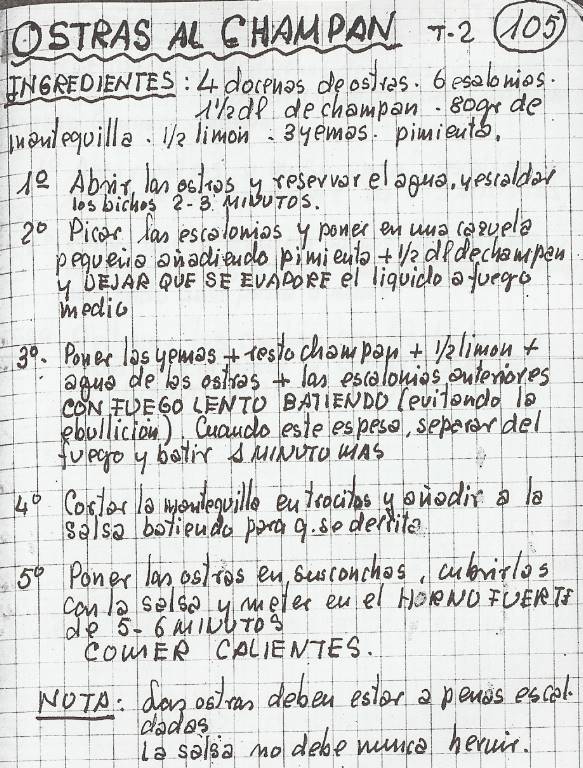 OSTRAS AL CHAMPAN T-2 105
INGREDIENTES: 4 docenas de ostras. 6 esalonias.
1 1/2 dl de champan. 80gr de
mantequilla. 1/2 limon. 3 yemas. pimienta.
1º Abrir las ostras y reservar el agua, y escaldar
los bichos 2-3 MINUTOS.
2º Picar las escalonias y poner en una cazuela
pequeña añadiendo pimienta + 1/2 dl de champan
y DEJAR QUE SE EVAPORE el liquido a fuego
medio
3º. Poner las yemas + resto champan + 1/2 limon +
agua de las ostras + las escalonias anteriores
CON FUEGO LENTO BATIENDO (evitando la
ebullicion). Cuando este espesa, separar del
fuego y batir 1 MINUTO MAS
4º Cortar la mantequilla en trocitos y añadir a la
salsa batiendo para q. se derrita
5º Poner las ostras en sus conchas, cubrirlas
con la salsa y meter en el HORNO FUERTE
de 5-6 MINUTOS
COMER CALIENTES.
NOTA: Las ostras deben estar a penas escal-
dadas
La salsa no debe nunca hervir.